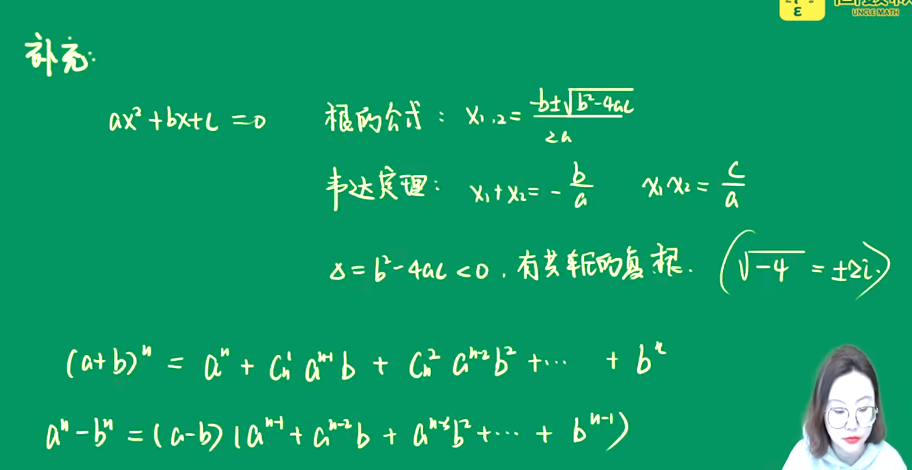 UNCLE MATH
补充:
ax²+bx+c=0 根的公式: x₁,₂=(-b±√(b²-4ac))/2a
韦达定理: x₁+x₂=-b/a x₁x₂=c/a
Δ=b²-4ac<0, 有共轭的复根. (√-4=±2i.)
(a+b)ⁿ = aⁿ + Cₙ¹aⁿ⁻¹b + Cₙ²aⁿ⁻²b² +⋯ + bⁿ
aⁿ-bⁿ=(a-b)(aⁿ⁻¹+aⁿ⁻²b+aⁿ⁻³b²+⋯+bⁿ⁻¹)